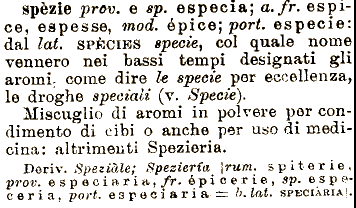 spèzie prov. e sp. especia; a. fr. espi-
ce, espesse, mod. épice; port. especie:
dal lat. SPÈCIES specie, col quale nome
vennero nei bassi tempi designati gli
aromi, come dire le specie per eccellenza,
le droghe speciali (v. Specie).
Miscuglio di aromi in polvere per con-
dimento di cibi o anche per uso di medi-
cina: altrimenti Spezieria.
Deriv. Speziàle; Speziería [rum. spiterie,
prov. especiaria, fr. épicerie, sp. espe-
ceria, port. especiaria = b. lat. SPECIÀRIA].